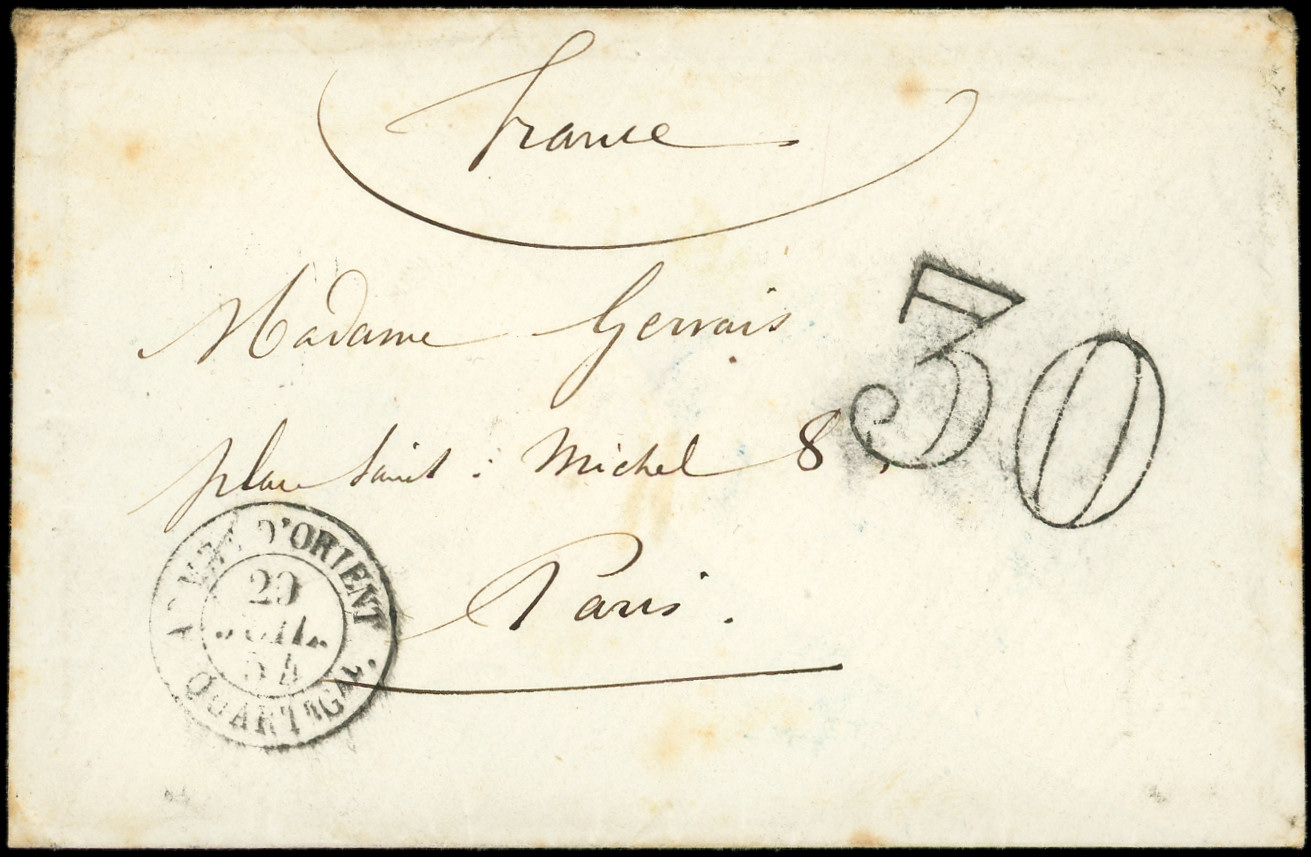 France
Madame Gervais
30
place Saint : Michel 8
Paris.
ARMÉE D'ORIENT
20
JUIL.
54
QUARTR GAL